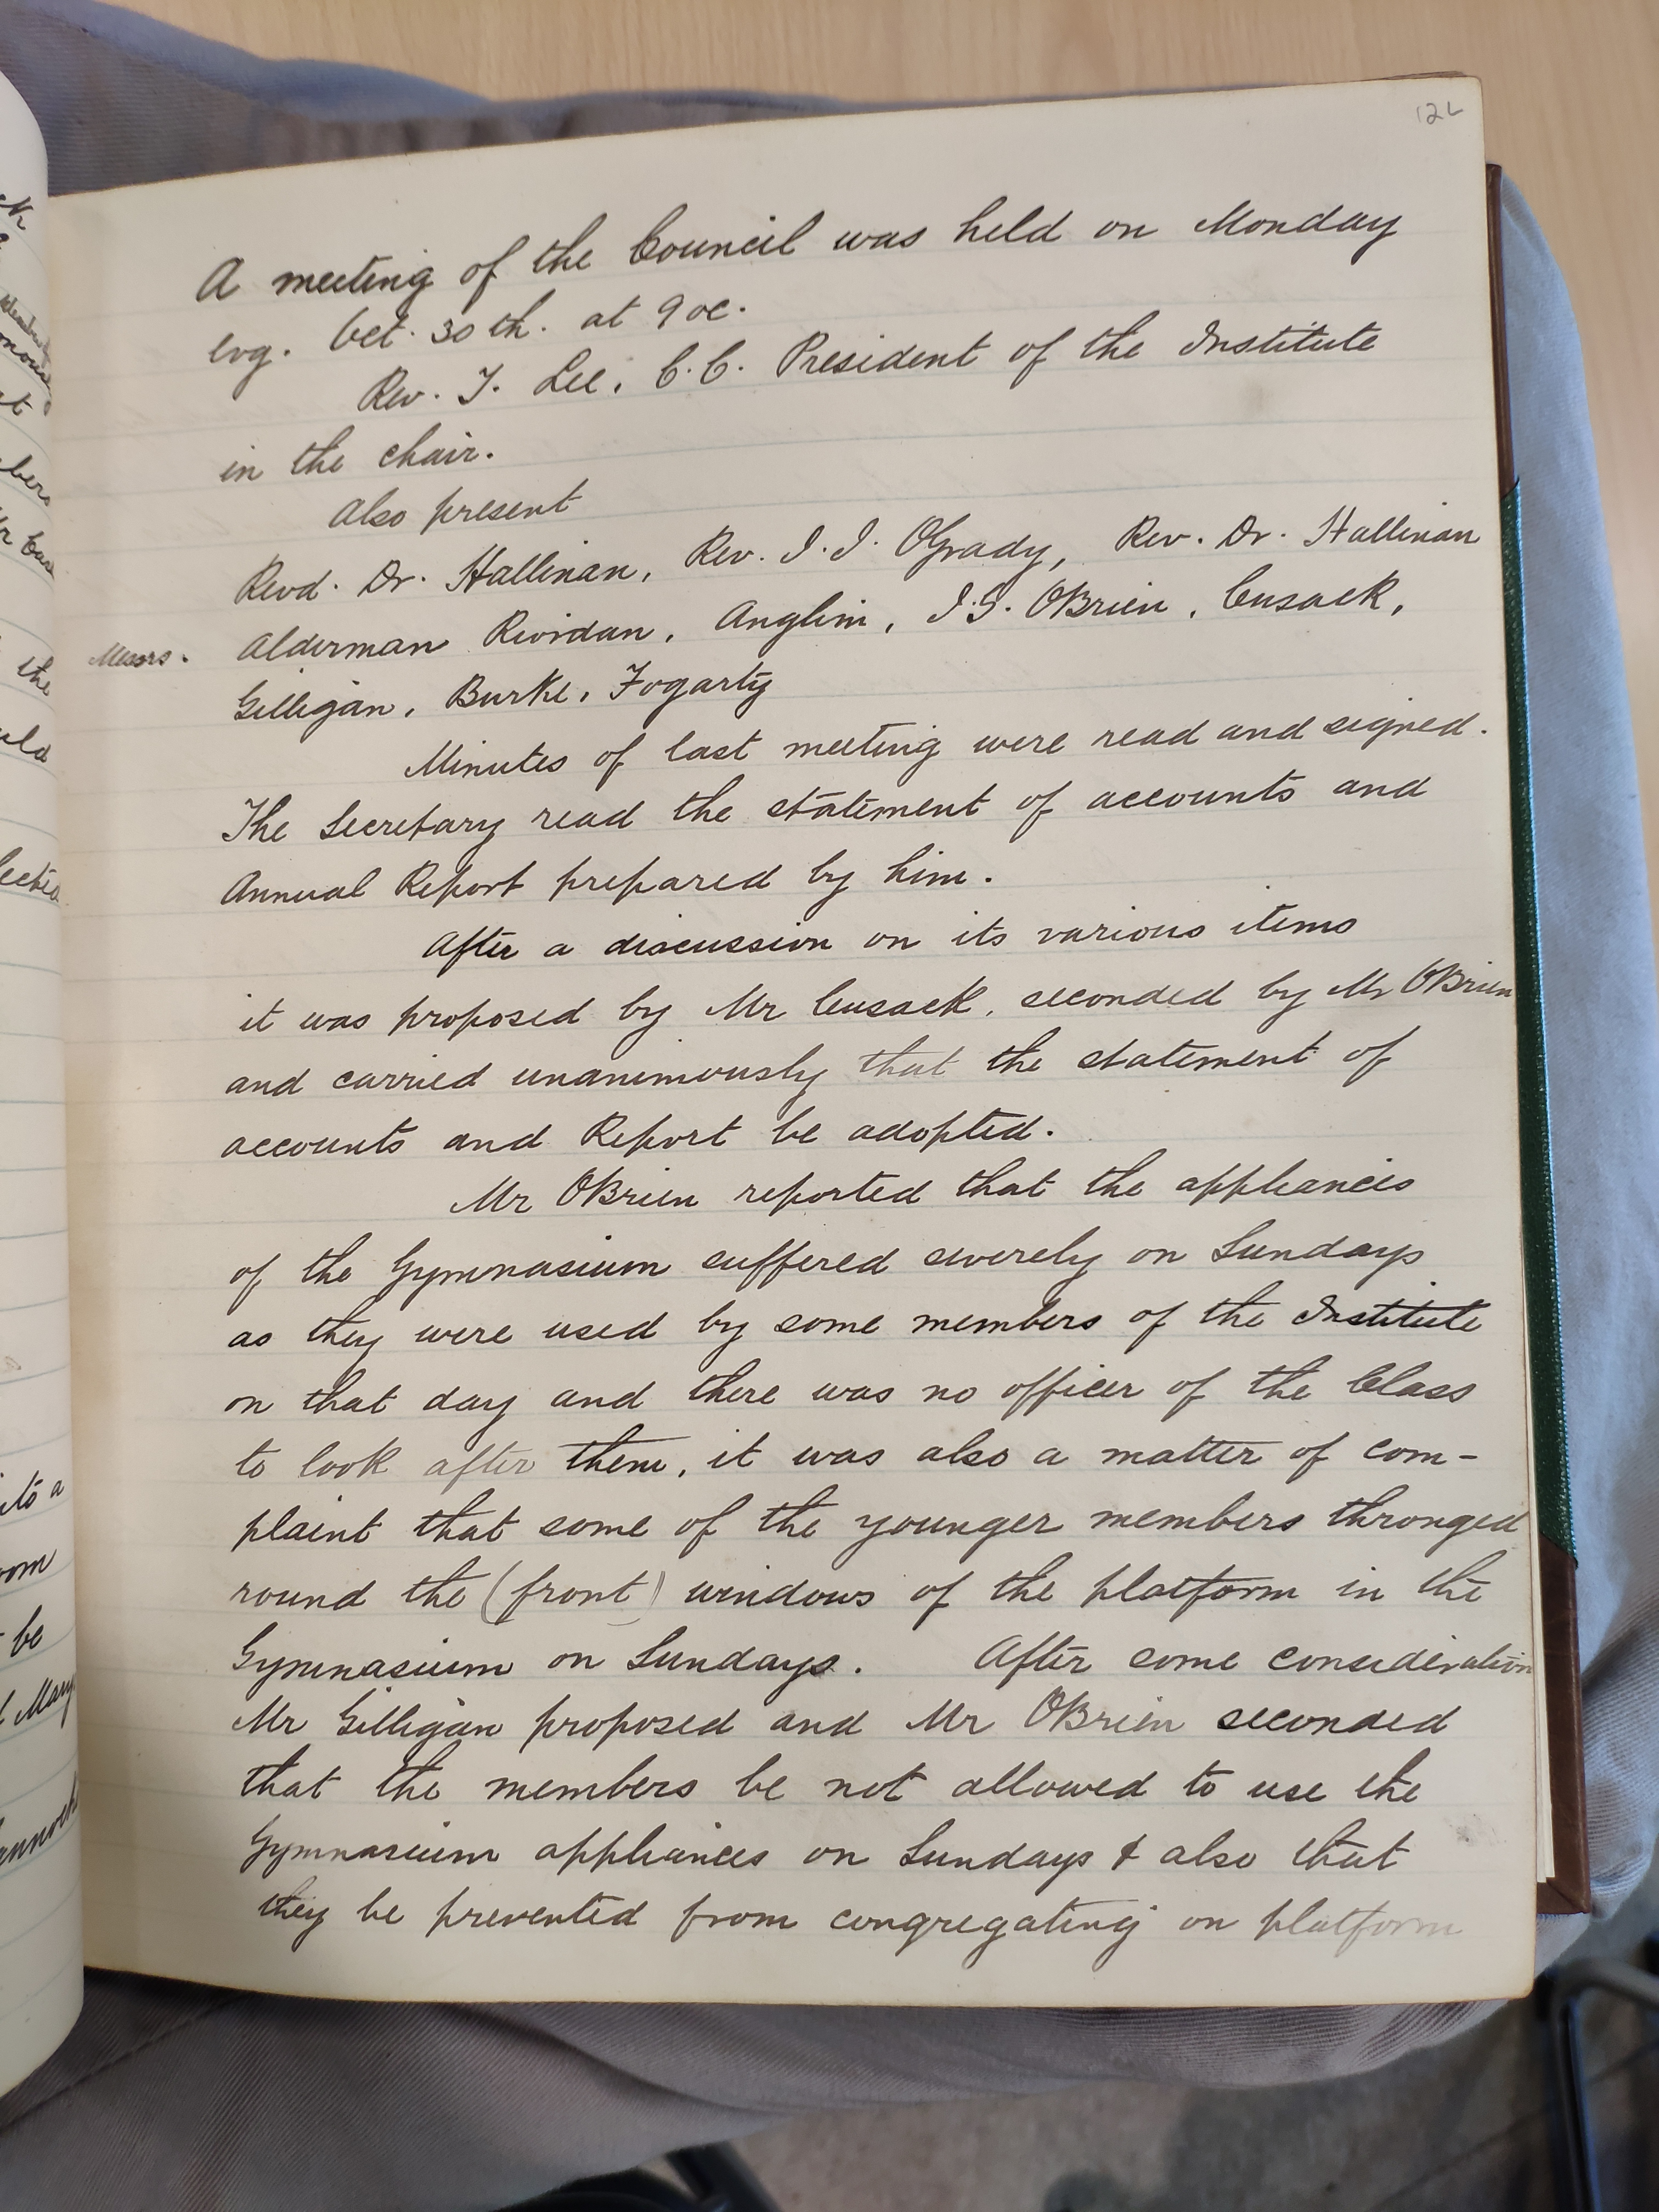 122
A meeting of the Council was held on Monday
evg. Oct. 30th. at 9 oc.
Rev. T. Lee, C.C. President of the Institute
in the chair.
Also present
Revd. Dr. Hallinan, Rev. J. J. OGrady, Rev. Dr. Hallinan
Messrs. Alderman Riordan, Anglim, J.G. OBrien, Cusack,
Gilligan, Burke, Fogarty
Minutes of last meeting were read and signed.
The Secretary read the statement of accounts and
Annual Report prepared by him.
After a discussion on its various items
it was proposed by Mr Cusack, seconded by Mr OBrien
and carried unanimously that the statement of
accounts and Report be adopted.
Mr OBrien reported that the appliances
of the Gymnasium suffered severely on Sundays
as they were used by some members of the Institute
on that day and there was no officer of the Class
to look after them, it was also a matter of com-
plaint that some of the younger members thronged
round the (front) windows of the platform in the
Gymnasium on Sundays. After some consideration
Mr Gilligan proposed and Mr OBrien seconded
that the members be not allowed to use the
Gymnasium appliances on Sundays & also that
they be prevented from congregating on platform